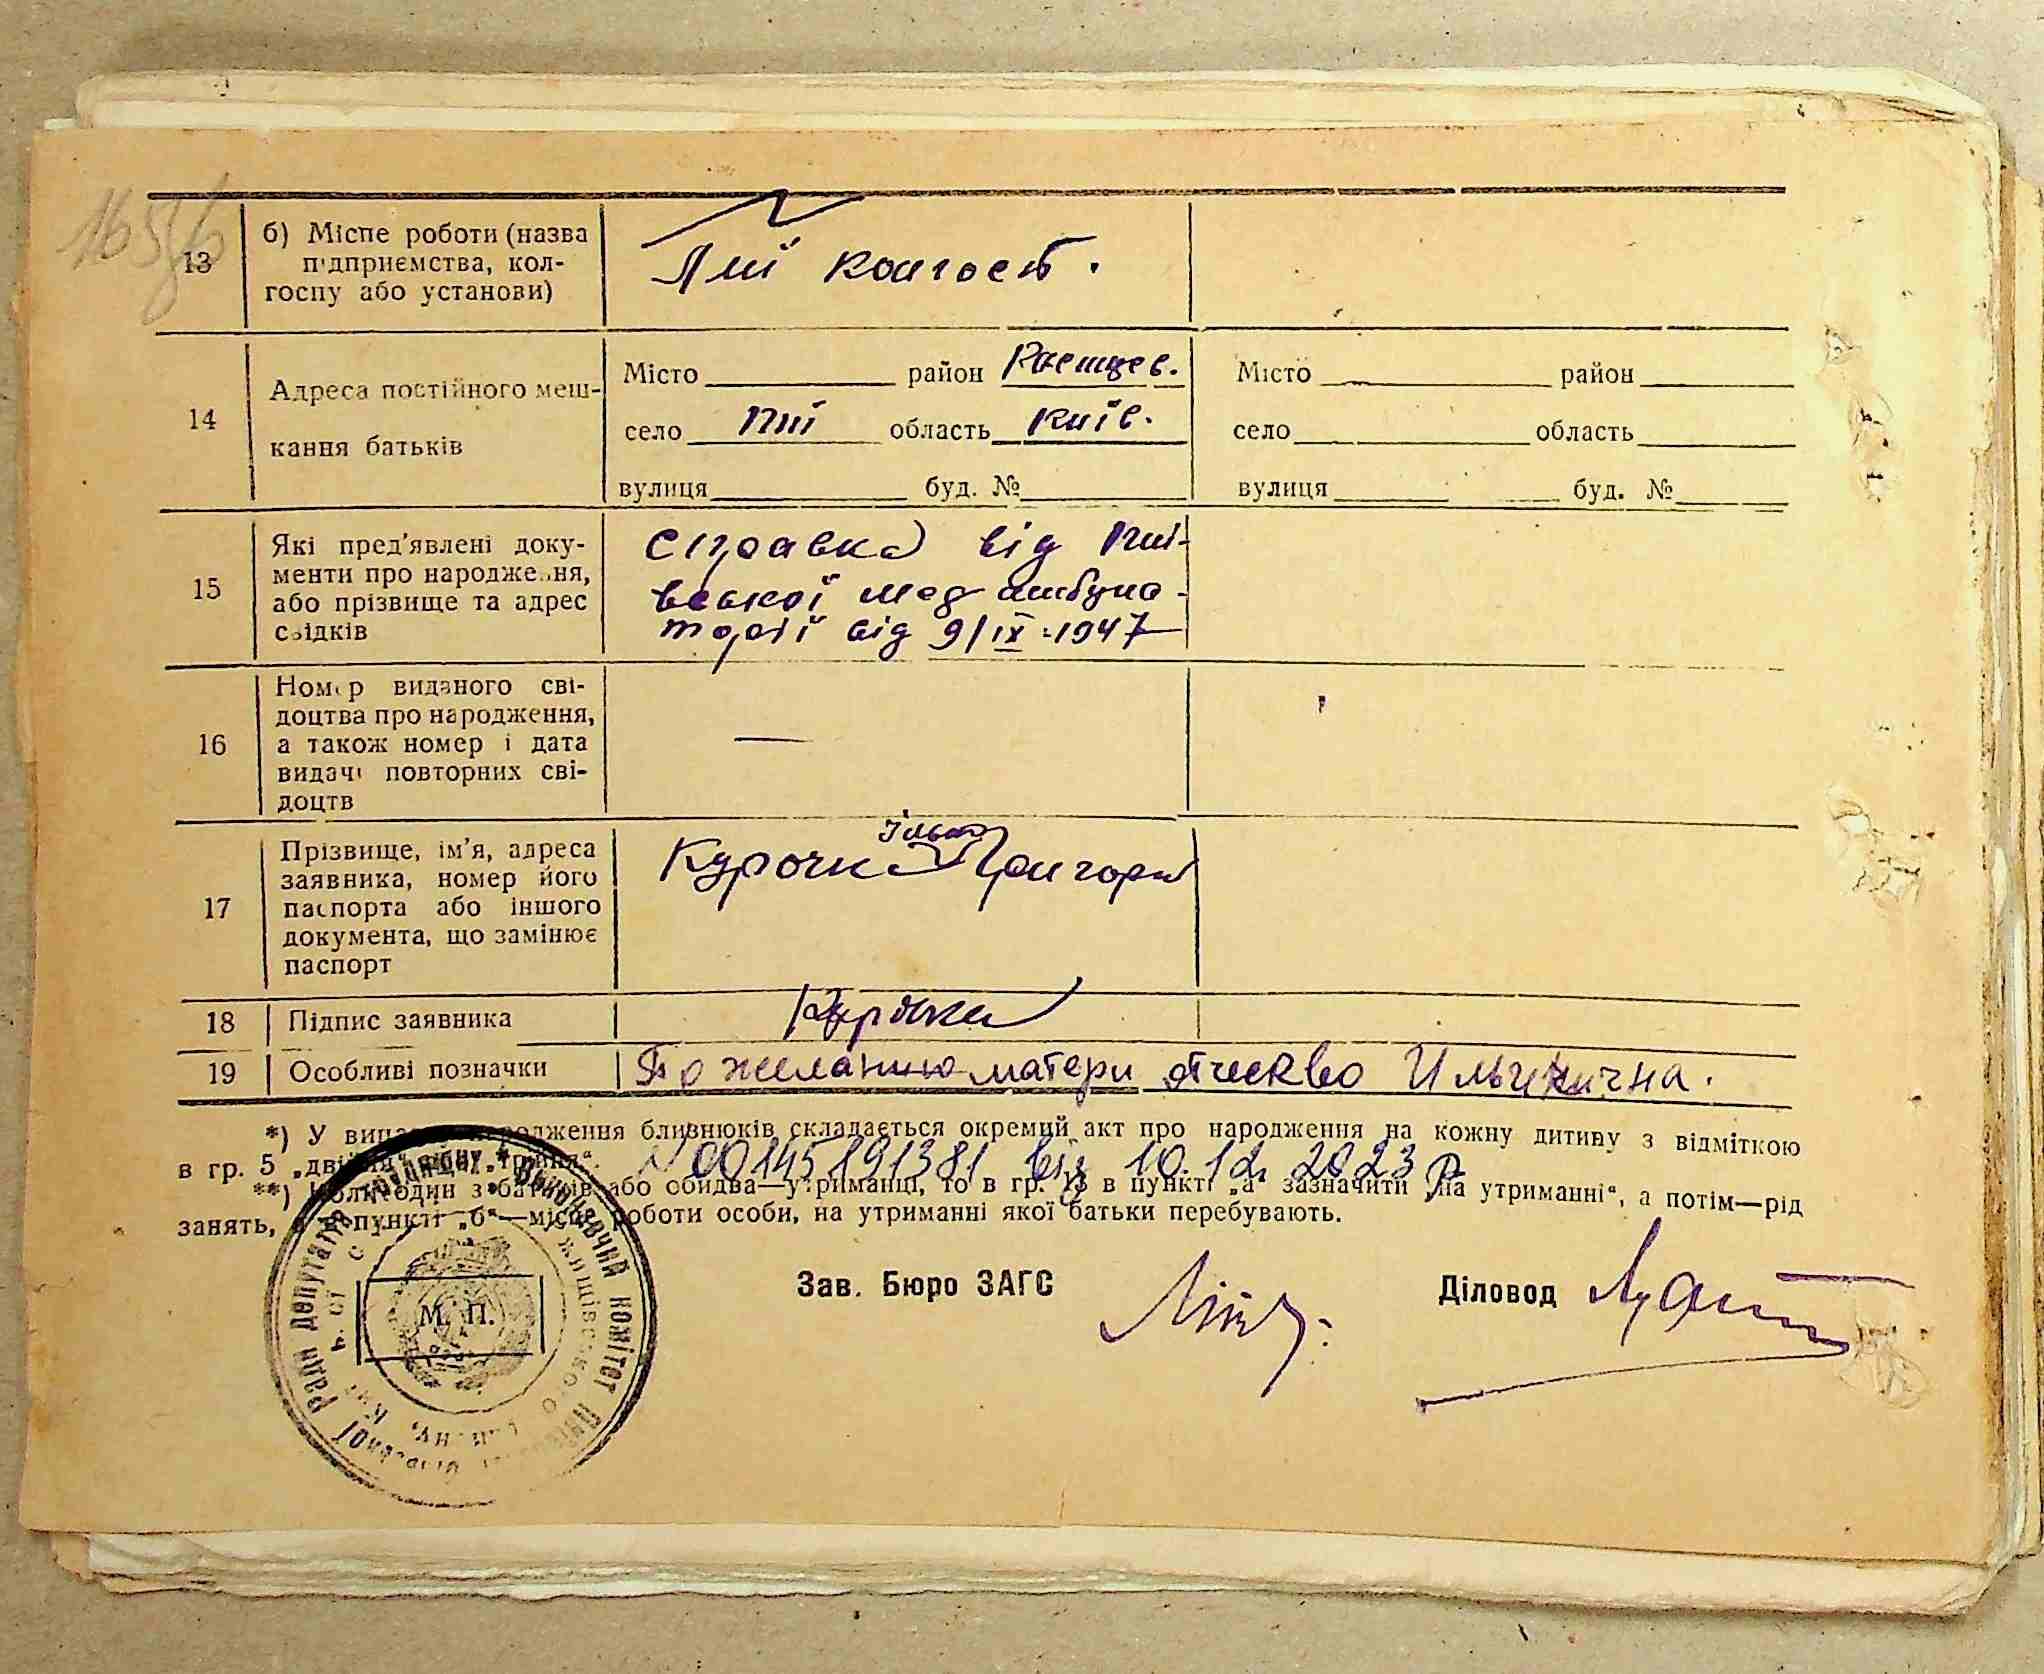 165/б
13
б) Місце роботи (назва
підприємства, кол-
госпу або установи)
Пії колгосп.
14
Адреса постійного меш-
кання батьків
Місто район
село Пії область Київ.
вулиця буд. №
Місто район
село область
вулиця буд. №
15
Які пред'явлені доку-
менти про народження,
або прізвище та адрес
свідків
Справка від Пиї-
вської мед амбула-
торії від 9/IX-1947
16
Номер виданого сві-
доцтва про народження,
а також номер і дата
видачі повторних сві-
доцтв
—
17
Прізвище, ім'я, адреса
заявника, номер його
паспорта або іншого
документа, що замінює
паспорт
Ілько
Курочка Григоров
18
Підпис заявника
Курочка
19
Особливі позначки
По желанию матери отчество Ильинична.
*) У випадку народження близнюків складається окремий акт про народження на кожну дитину з відміткою
в гр. 5 „двійня“, „трійня“.
N00145191381 від 10.12.2023 р
**) Коли один з батьків або обидва—утриманці, то в гр. 13 в пункті „а“ зазначити „на утриманні“, а потім—рід
занять, а в пункті „б“—місце роботи особи, на утриманні якої батьки перебувають.
Зав. Бюро ЗАГС
Діловод
М. П.
Виконавчий комітет
Ради депутатів трудящих